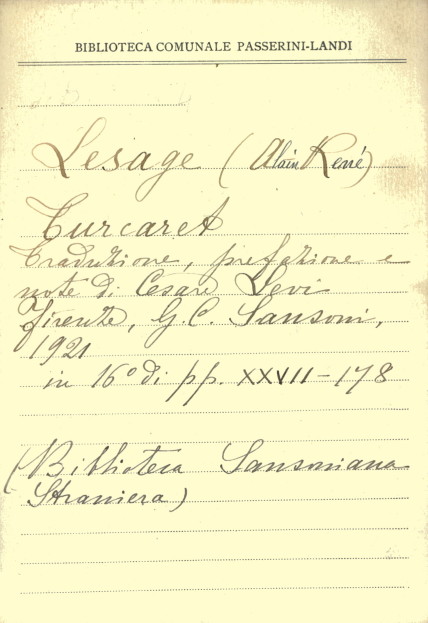 BIBLIOTECA COMUNALE PASSERINI-LANDI
Lesage (Alain René)
Turcaret
Traduzione, prefazione e
note di Cesare Levi
Firenze, G. C. Sansoni,
1921
in 16º di pp. XXVII-178
(Biblioteca Sansoniana
Straniera)